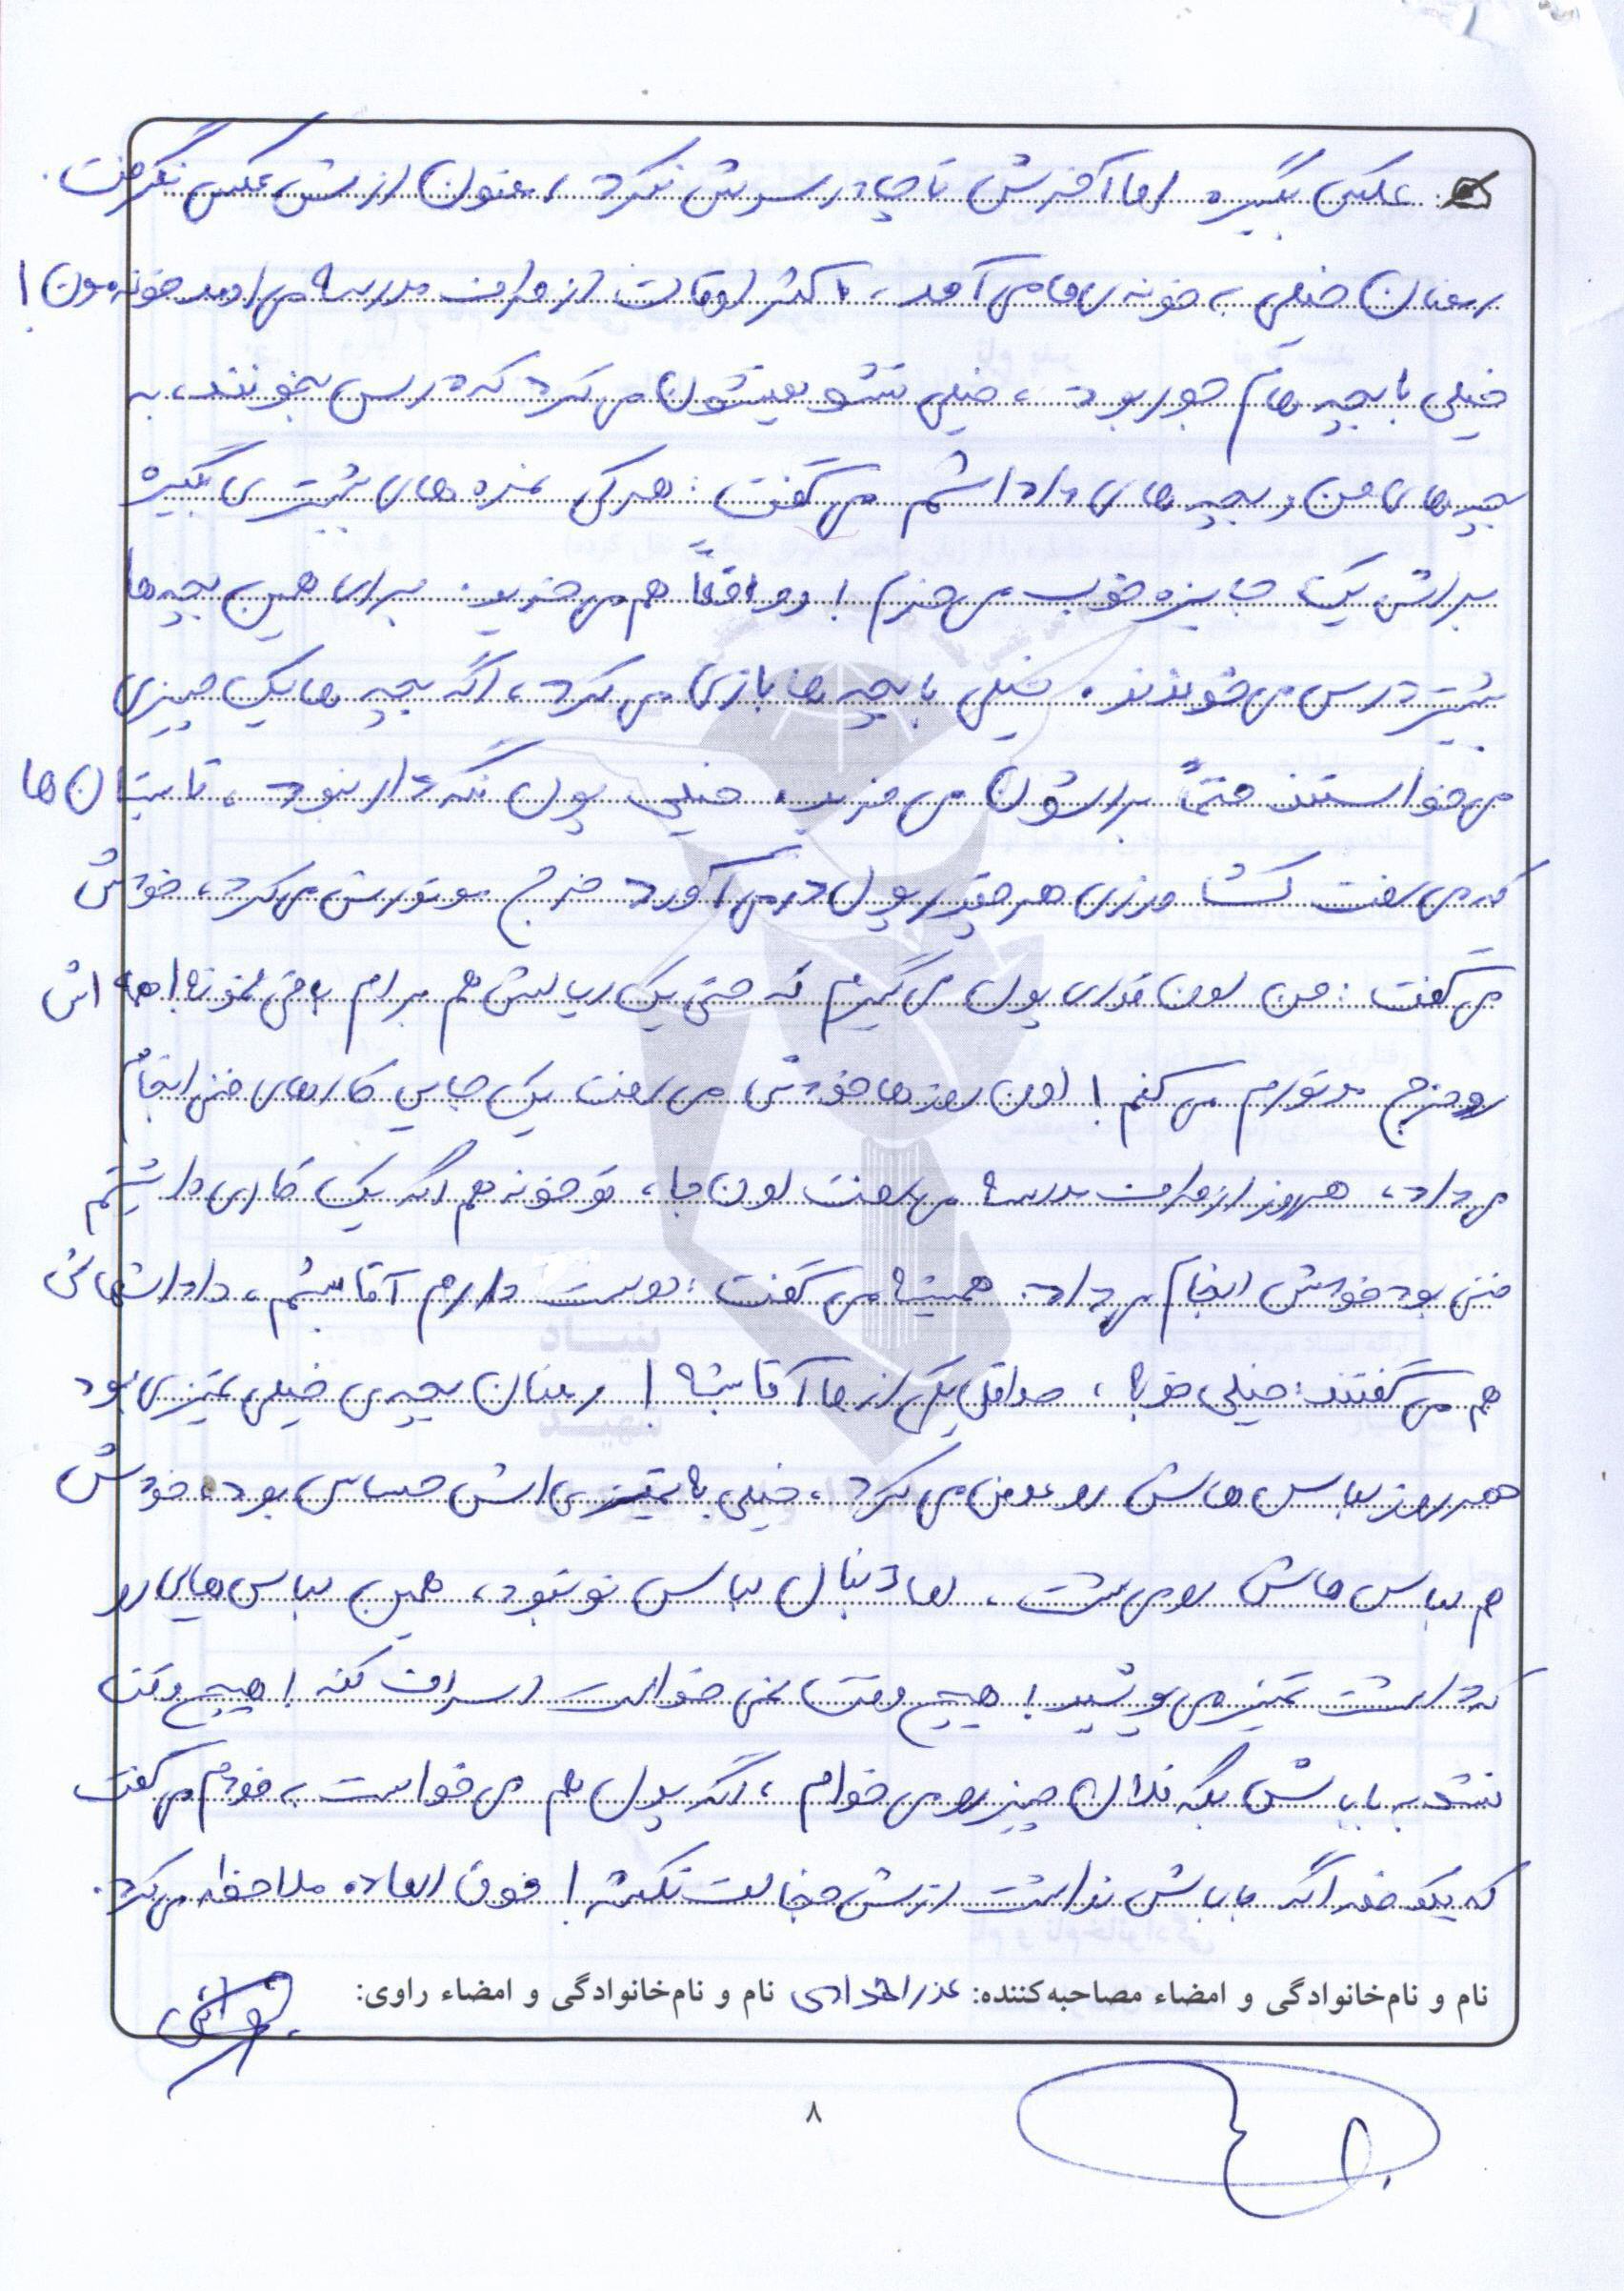 عکس بگیره اما آخرش تا چادر سرش نکرد رمضون ازش عکس نگرفت.
رمضان خیلی به خونه ی ما می آمد، اکثر اوقات از طرف مدرسه می اومد خونه مون!
خیلی با بچه هام جور بود، خیلی تشویقشون می کرد که درس بخونند، به
بچه های من و بچه های داداشم می گفت: هر کی نمره های بیشتری بگیره
براش یک جایزه خوب می خرم! و واقعاً هم می خرید. برای همین بچه ها
بیشتر درس می خوندند. خیلی با بچه ها بازی می کرد، اگه بچه ها یک چیزی
می خواستند حتماً براشون می خرید. خیلی پول نگه دار نبود، تابستان ها
که می رفت کشاورزی هر چقدر پول در می آورد خرج موتورش می کرد، خودش
می گفت: من اون قدری پول می گیرم که حتی یک ریالش هم برام باقی نمونه! همه اش
رو خرج موتورم می کنم! اون روزها خودش می رفت یک جایی کارهای فنی انجام
می داد، هر روز از طرف مدرسه می رفت اون جا، تو خونه هم اگه یک کاری داشتیم
فنی بود خودش انجام می داد. همیشه می گفت: دوست دارم آقا بشم، داداشهاش
هم می گفتند: خیلی خوبه، حداقل یکی از ما آقا بشه! رمضان بچه ی خیلی تمیزی بود
هر روز لباس هاش رو عوض می کرد، خیلی با تمیزی اش حساس بود، خودش
هم لباس هاش رو می شست، اما دنبال لباس نو نبود، همین لباس هایی رو
که داشت تمیز می پوشید! هیچ وقت نمی خواست اسراف کنه! هیچ وقت
نشد به باباش بگه فلان چیز رو می خوام، اگه پول هم می خواست به خودم می گفت
که یکدفعه اگه باباش نداشت ازش خجالت نکشه! فوق العاده ملاحظه می کرد.
نام و نام‌خانوادگی و امضاء مصاحبه‌کننده: عذرا خدادادی نام و نام‌خانوادگی و امضاء راوی:
۸